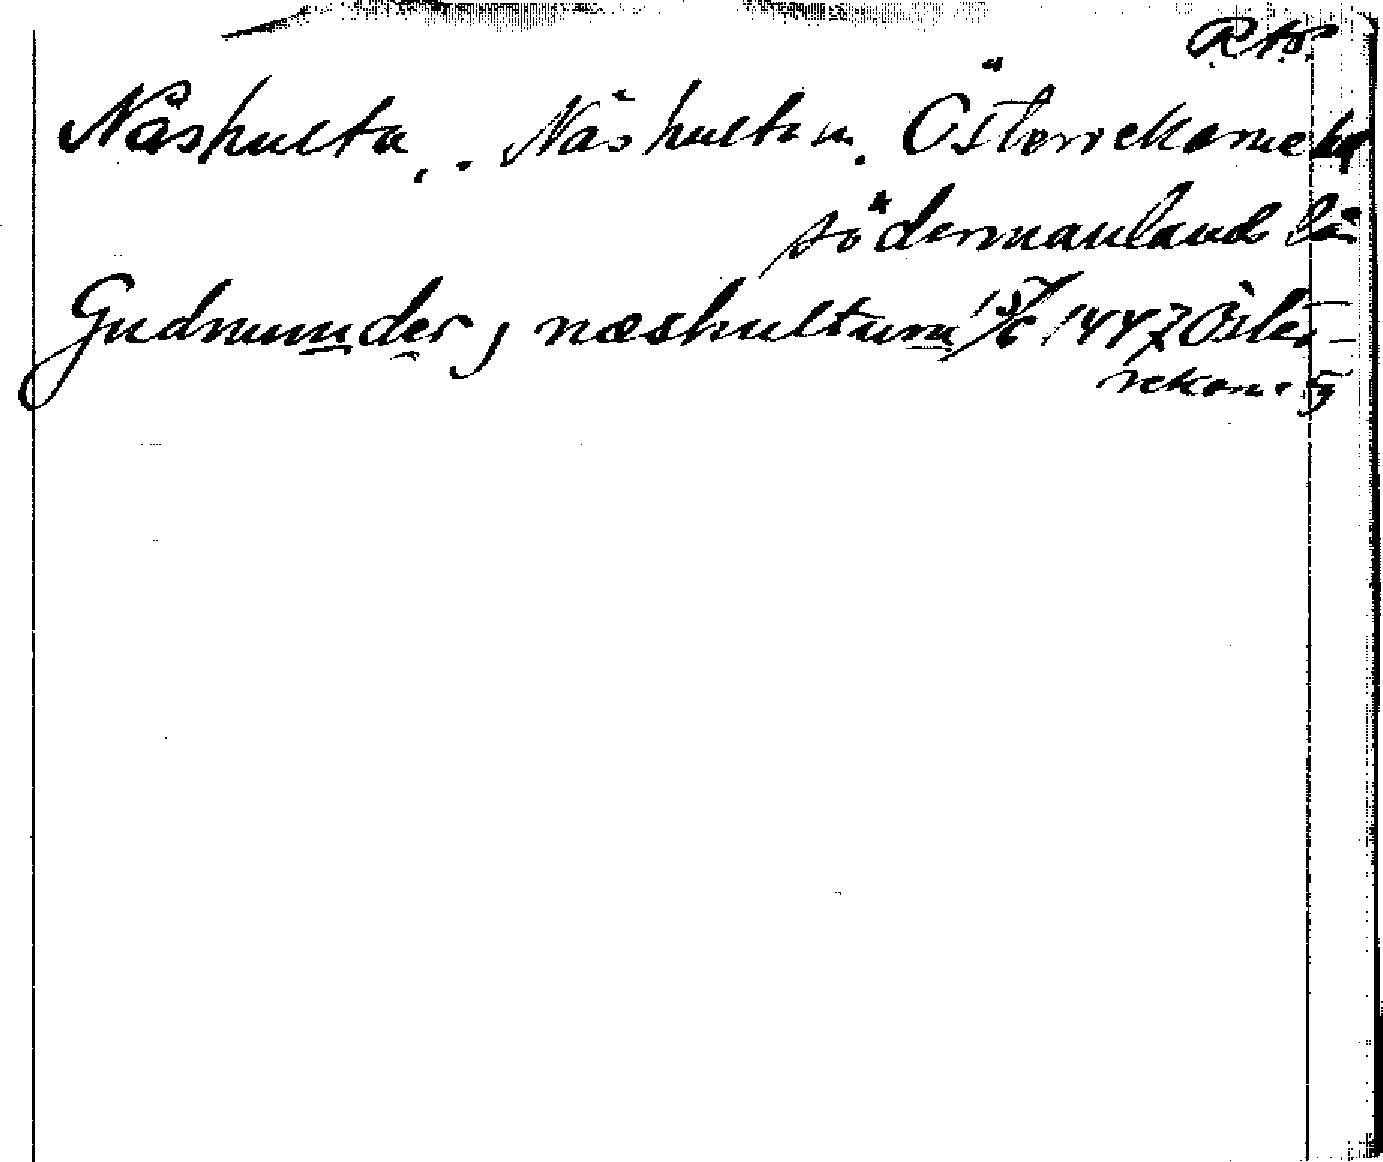 Näshulta, . Näshulta sn. Österrekarne hd
Södermanlands län
Gudmunder j næshultum 1447 Öster-
rekarne hd